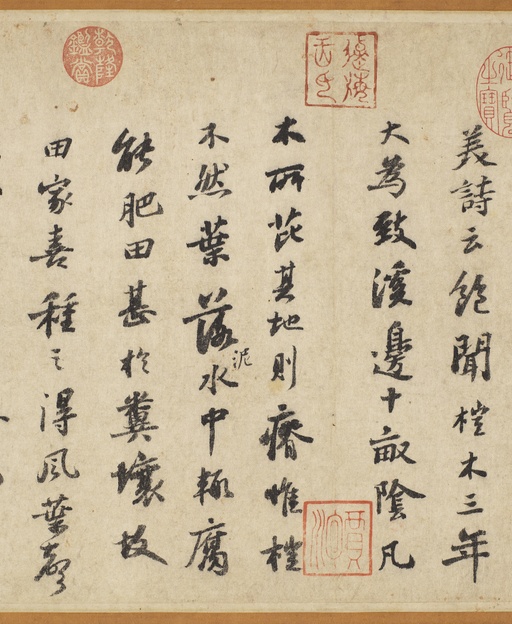 美詩云飽聞榿木三年
大為致溪邊十畝陰凡
木所芘其地則瘠惟榿
不然葉落泥水中輒腐
能肥田甚於糞壤故
田家喜種之得風葉聲
乾隆鑑賞